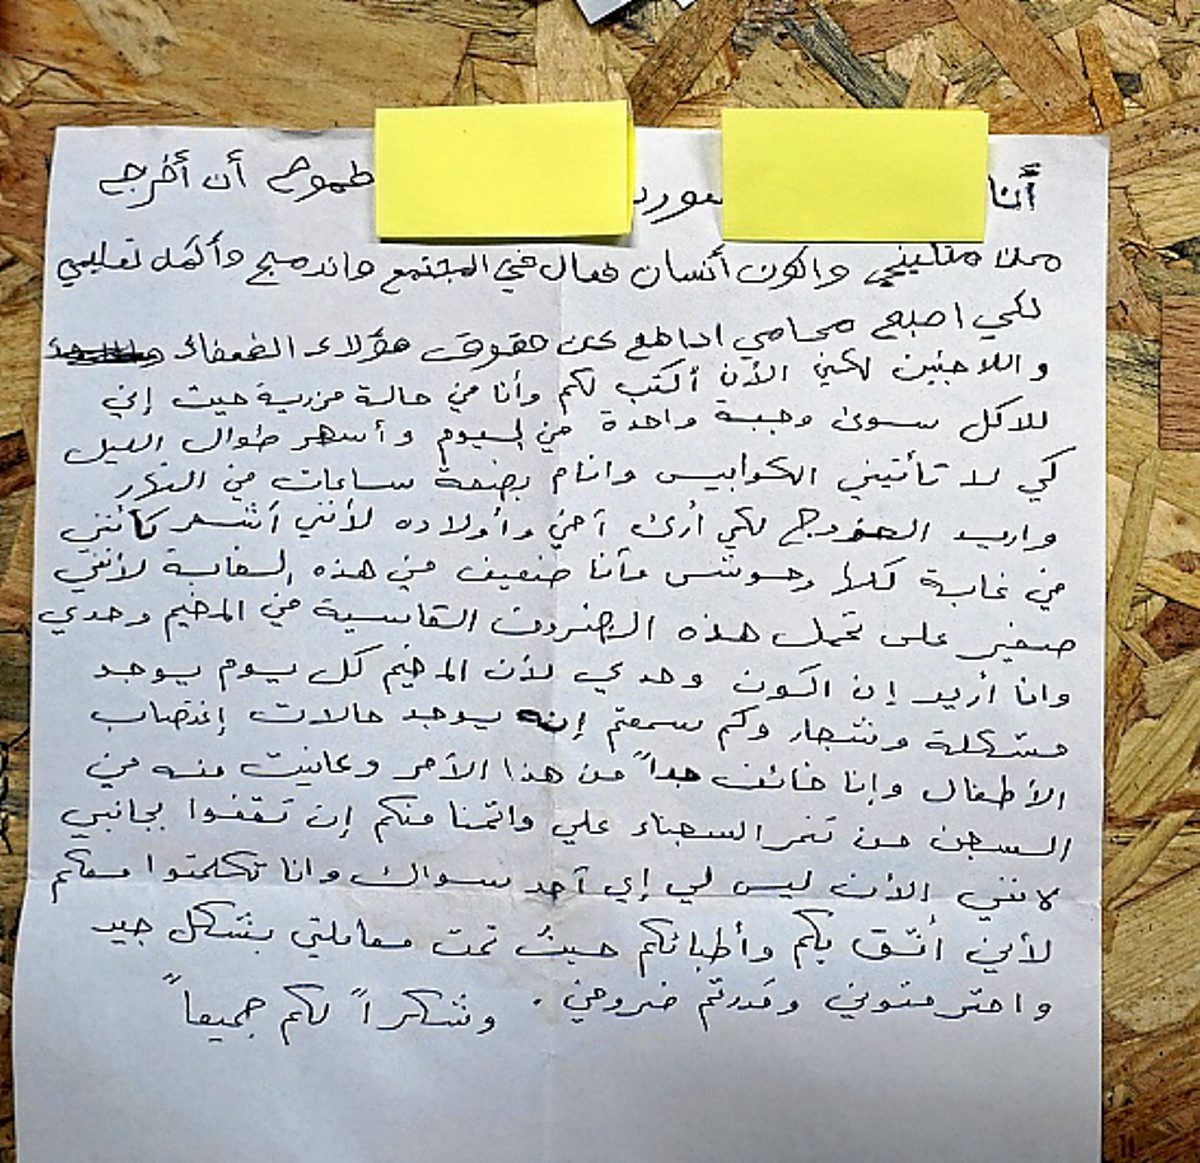 أنا سوري طموح أن أخرج
من متليني واكون أنسان فعال في المجتمع واندمج وأكمل تعليمي
لكي اصبح محامي ادافع عن حقوق هؤلاء الضعفاء
واللاجئين لكني الأن أكتب لكم وأنا في حالة مزرية حيث إني
للاكل سوى وجبة واحدة في اليوم وأسهر طوال الليل
كي لا تأتيني الكوابيس وانام بضعة ساعات في النهار
واريد الخروج لكي أرى أخي وأولاده لأنني أشعر كأنني
في غابة كلها وحوش وأنا ضعيف في هذه الغابة لأنني
صغير على تحمل هذه الضروف القاسية في المخيم وحدي
وانا أريد إن اكون وحدي لأن المخيم كل يوم يوجد
مشكلة وشجار وكم سمعتم إنه يوجد حالات إغتصاب
الأطفال وإنا خائف جداً من هذا الأمر وعانيت منه في
السجن من تنمر السجناء علي واتمنا منكم إن تقفوا بجانبي
لانني الأن ليس لي إي أحد سواك وانا تكلمتوا معكم
لأني أثق بكم وأطبائكم حيث تمت معاملتي بشكل جيد
واحترمتوني وقدرتم ضروفي . وشكراً لكم جميعاً